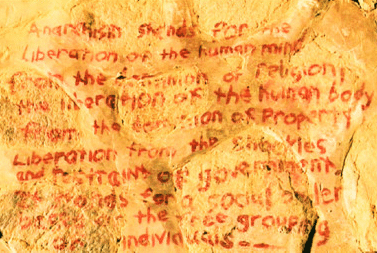 Anarchism stands for the
Liberation of the human mind
from the dominion of religion;
the liberation of the human body
from the dominion of Property
Liberation from the shackles
and restraint of government
It stands for a social order
based on the free grouping
of individuals